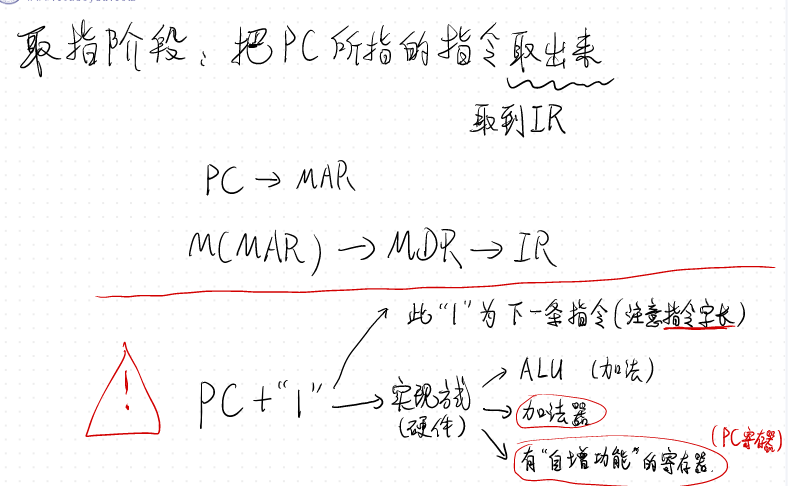 取指阶段：把PC所指的指令取出来
取到IR
PC → MAR
M(MAR) → MDR → IR
此“1”为下一条指令(注意指令字长)
!
PC+“1”
实现方式
(硬件)
ALU (加法)
加法器
(PC寄存器)
有“自增功能”的寄存器.